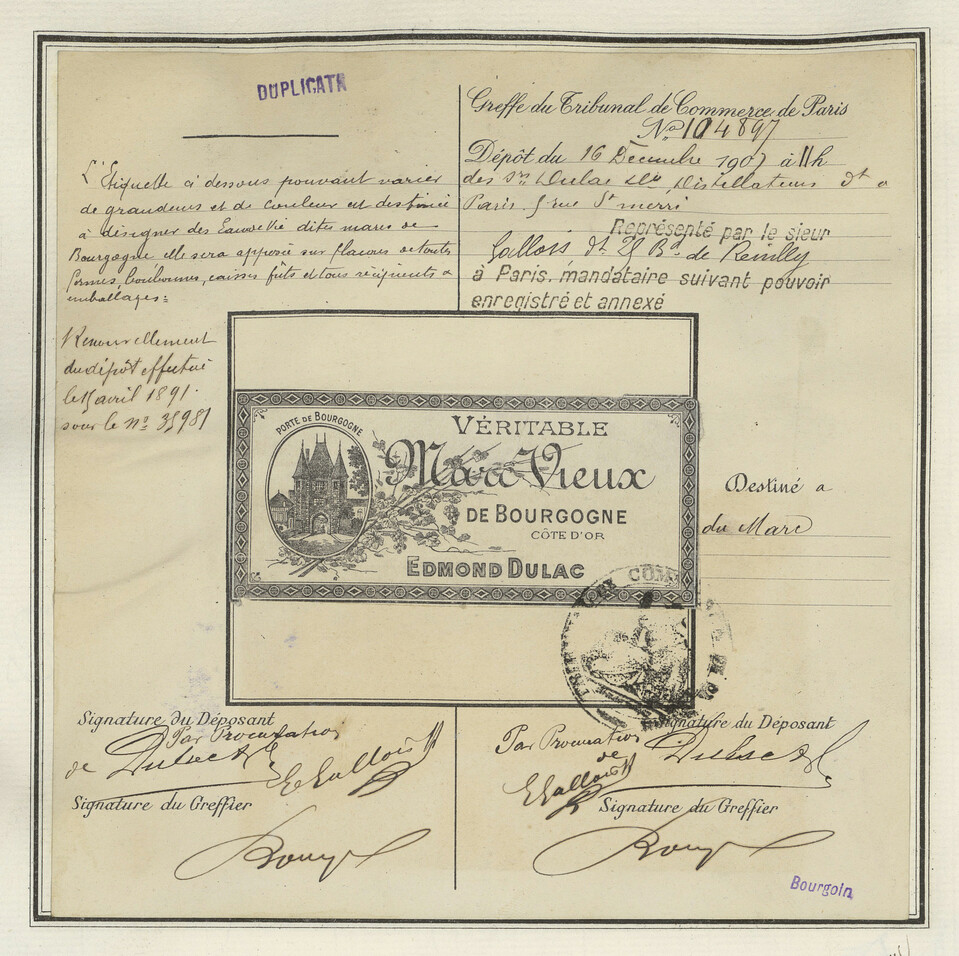 DUPLICATA
L'Etiquette ci dessous pouvant varier
de grandeurs et de couleur est destinée
à désigner des Eaux de Vie dites marcs de
Bourgogne elle sera apposée sur flacons de toutes
formes, bonbonnes, caisses, fûts et tous récipients &
emballages =
Renouvellement
du dépôt effectué
le 15 avril 1891.
sous le nº 35981
Greffe du Tribunal de Commerce de Paris
Nº 104897
Dépôt du 16 Décembre 1907 à 11h
des Srs Dulac & Co, Distillateurs dt à
Paris 5 rue St merri
Représenté par le sieur
Gallois dt 28 Bd de Reuilly
à Paris, mandataire suivant pouvoir
enregistré et annexé
PORTE DE BOURGOGNE
VÉRITABLE
Marc Vieux
DE BOURGOGNE
CÔTE D'OR
EDMOND DULAC
Destiné à
du Marc
Signature du Déposant
Par Procuration
de Dulac & Co
E Gallois
Signature du Greffier
Signature du Déposant
Par Procuration
de Dulac & Co
E Gallois
Signature du Greffier
Bourgoin